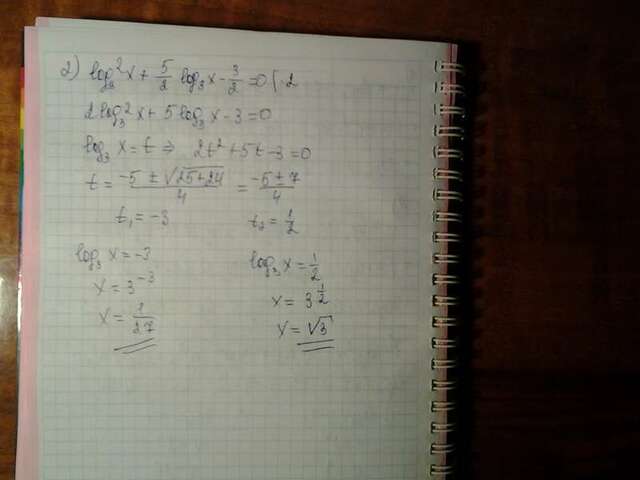 2) log₃²x + 5/2 log₃x - 3/2 = 0 | 2
2log₃²x + 5log₃x - 3 = 0
log₃x = t ⇒ 2t² + 5t - 3 = 0
t = (-5 ± √(25+24))/4 = (-5 ± 7)/4
t₁ = -3 t₂ = 1/2
log₃x = -3 log₃x = 1/2
x = 3⁻³ x = 3^(1/2)
x = 1/27 x = √3